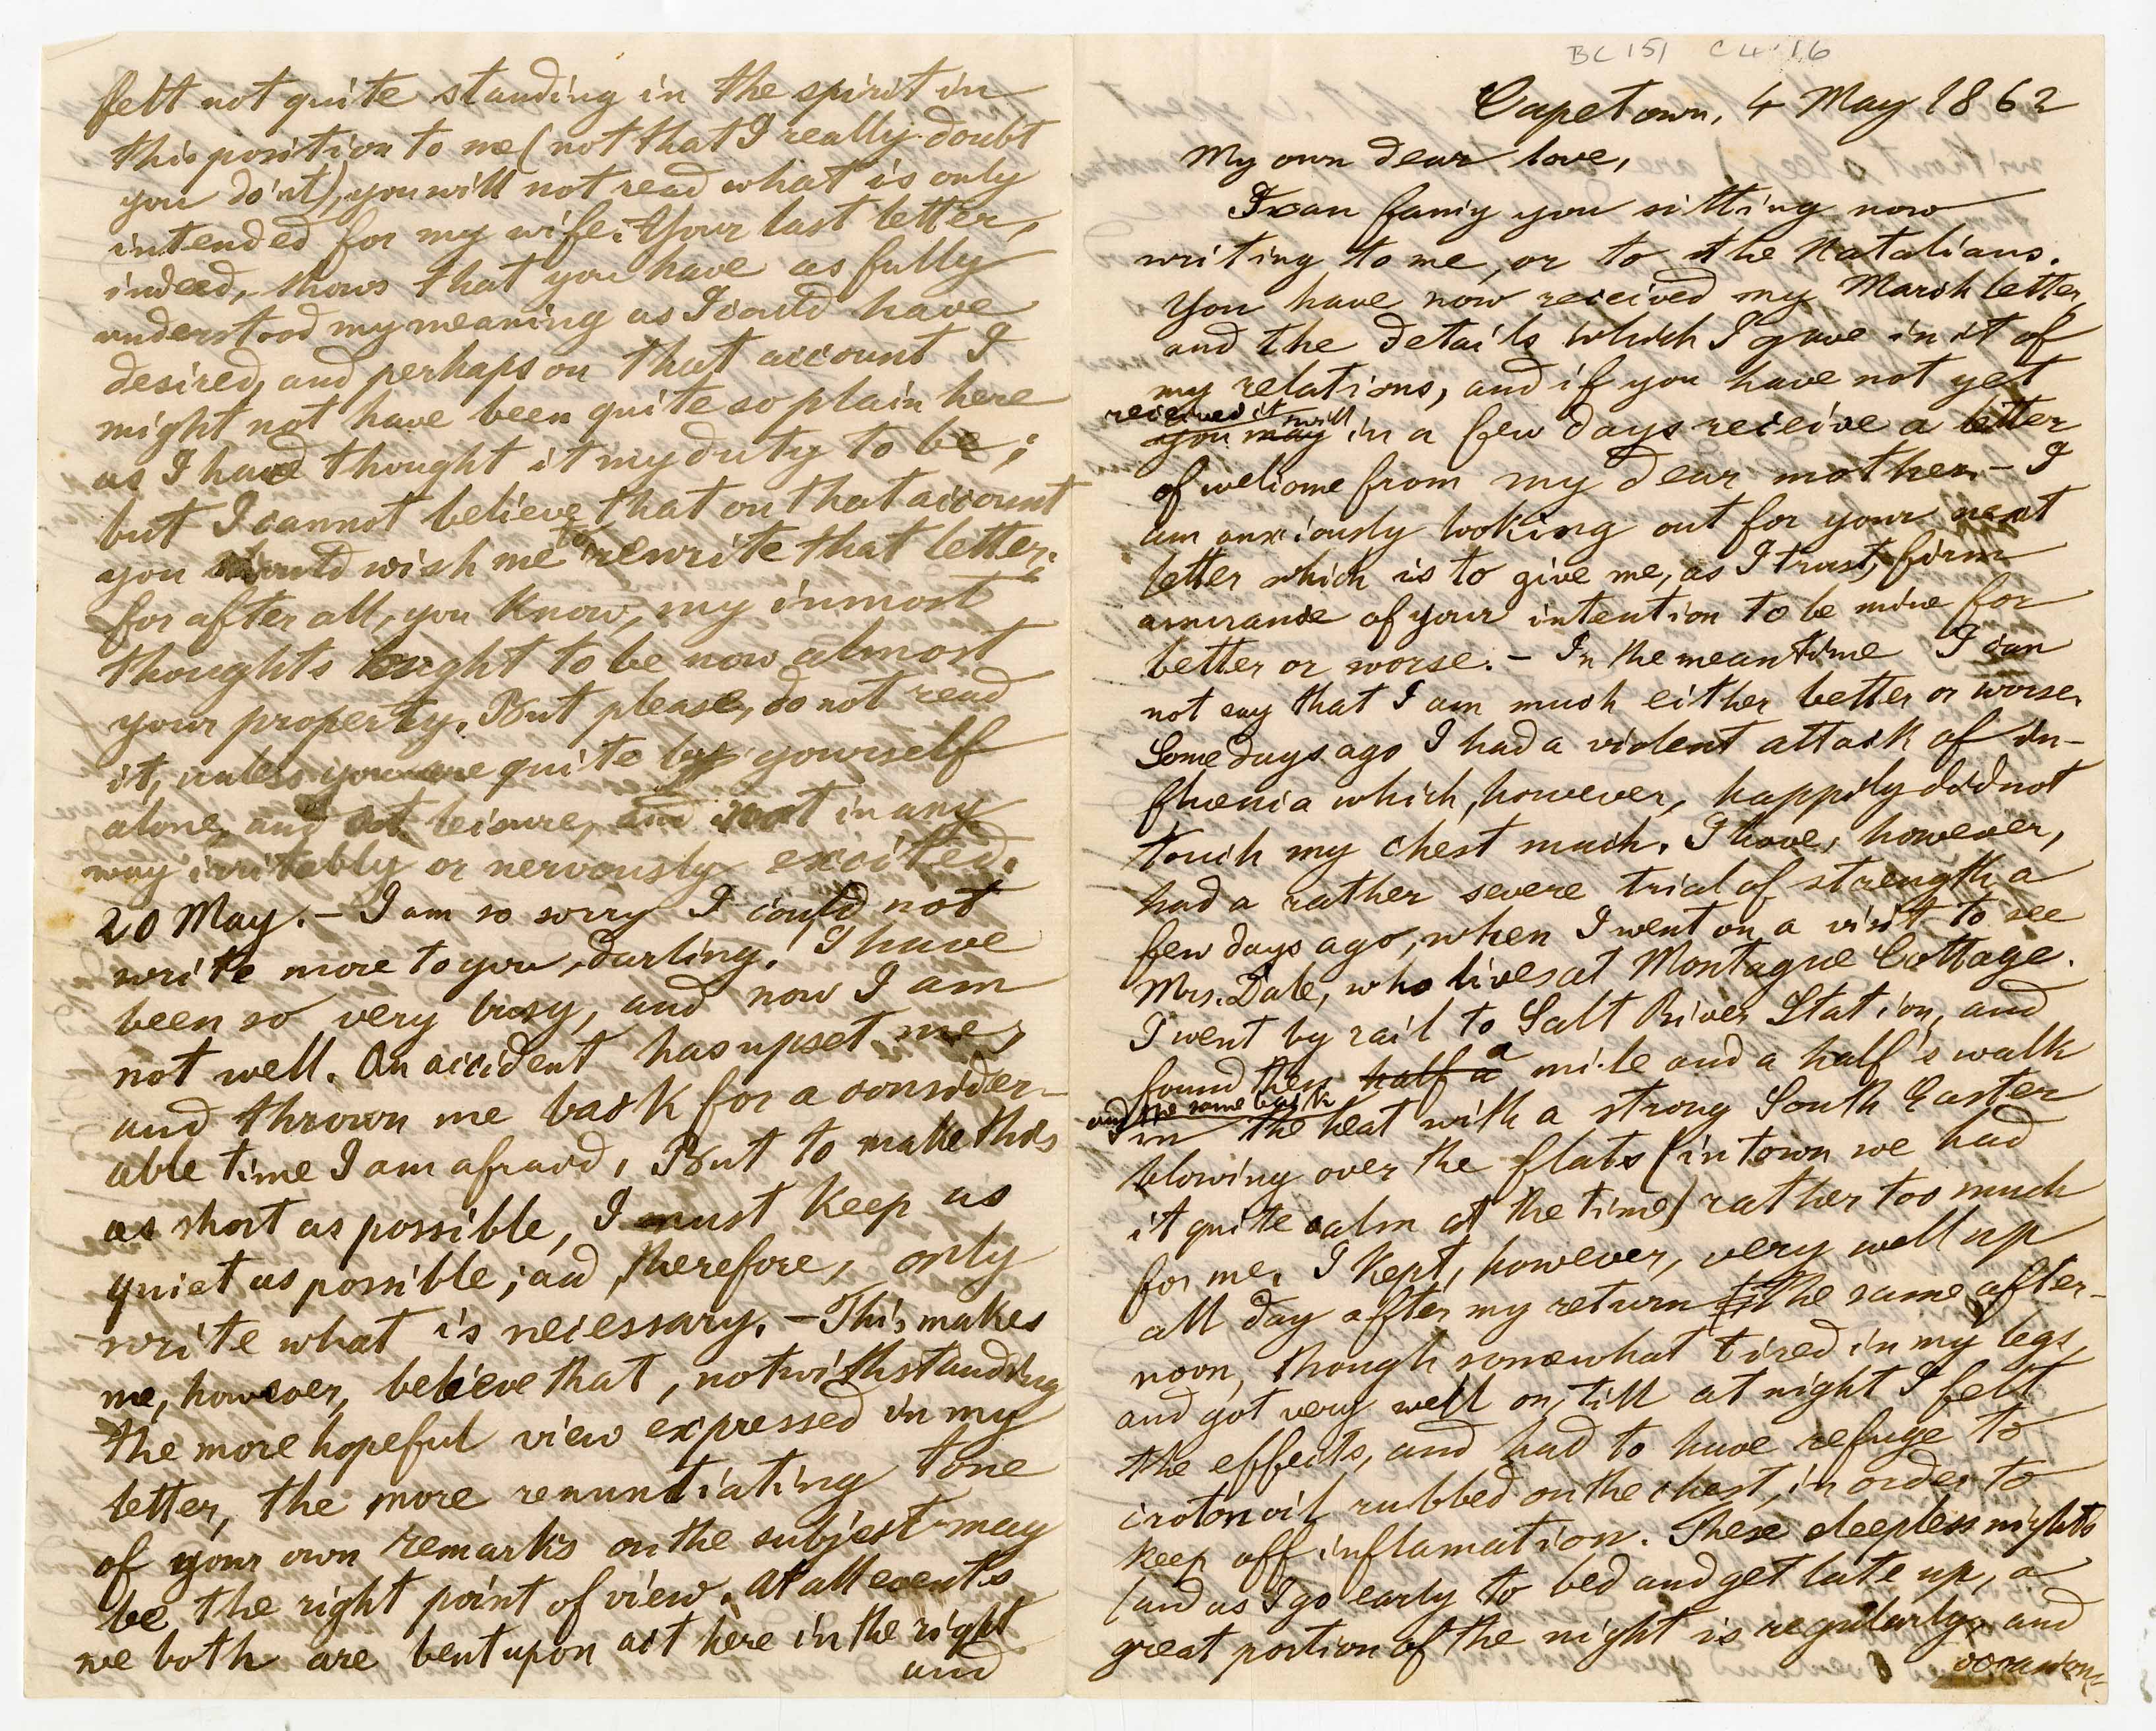 BC 151 C 4.16
Capetown, 4 May 1862
My own dear love,
I can fancy you sitting now
writing to me, or to the Natalians.
You have now received my March letter,
and the details which I gave in it of
my relations, and if you have not yet
received it will
you may in a few days receive a letter
of welcome from my dear mother. – I
am anxiously looking out for your next
letter which is to give me, as I trust, firm
assurance of your intention to be mine for
better or worse. – In the meantime I can
not say that I am much either better or worse.
Some days ago I had a violent attack of in-
fluenia which, however, happily did not
touch my chest much. I have, however,
had a rather severe trial of strength a
few days ago, when I went on a visit to see
Mrs. Dale, who lives at Montague Cottage.
I went by rail to Salt River Station, and
found then half a a mile and a half's walk
and the same back
in the heat with a strong South Easter
blowing over the flats (in town we had
it quite calm at the time) rather too much
for me. I kept, however, very well up
all day after my return the same after-
noon, though somewhat tired in my legs,
and got very well on, till at night I felt
the effects, and had to have refuge to
croton oil rubbed on the chest, in order to
keep off inflamation. These sleepless nights
(and as I go early to bed and get late up, a
great portion of the night is regularly, and
occasion-
felt not quite standing in the spirit in
this position to me (not that I really doubt
you do'nt), you will not read what is only
intended for my wife. Your last letter,
indeed, shows that you have as fully
understood my meaning as I could have
desired, and perhaps on that account I
might not have been quite so plain here
as I have thought it my duty to be;
but I cannot believe that on that account
you would wish me to rewrite that letter;
for after all, you know, my inmost
thoughts ought to be now almost
your property. But please, do not read
it, unless you are quite by yourself
alone, and at leisure, and not in any
way irritably or nervously excited.
20 May. – I am so sorry I could not
write more to you, darling. I have
been so very busy, and now I am
not well. An accident has upset me,
and thrown me back for a consider-
able time I am afraid. But to make this
as short as possible, I must keep as
quiet as possible; and, therefore, only
write what is necessary. – This makes
me, however, believe that, notwithstanding
the more hopeful view expressed in my
letter, the more renuntiating tone
of your own remarks on the subject may
be the right point of view. At all events
we both are bent upon act here in the right
and